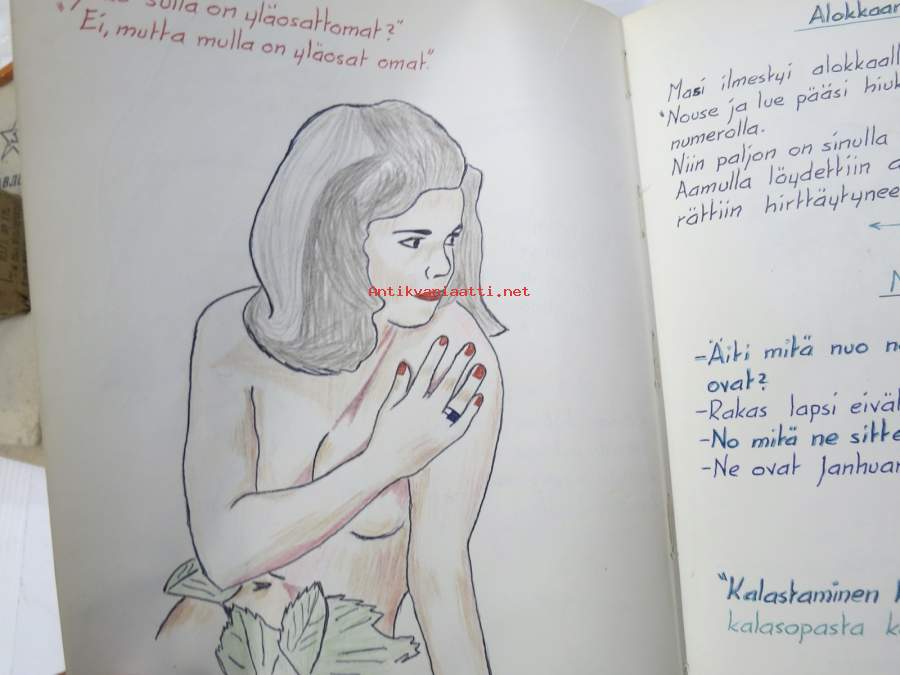 sulla on yläosattomat?"
"Ei, mutta mulla on yläosat omat."
Antikvapiaatti.net
Masi ilmestyi
"Nouse ja lue pääsi
numerolla.
Niin paljon on sinulla
Aamulla löydettiin
rättiin hirttäytynee
-Äiti mitä nuo
ovat?
-Rakas lapsi eivät
-No mitä ne sitte
-Ne ovat Janhuan
"Kalastaminen
kalasopasta